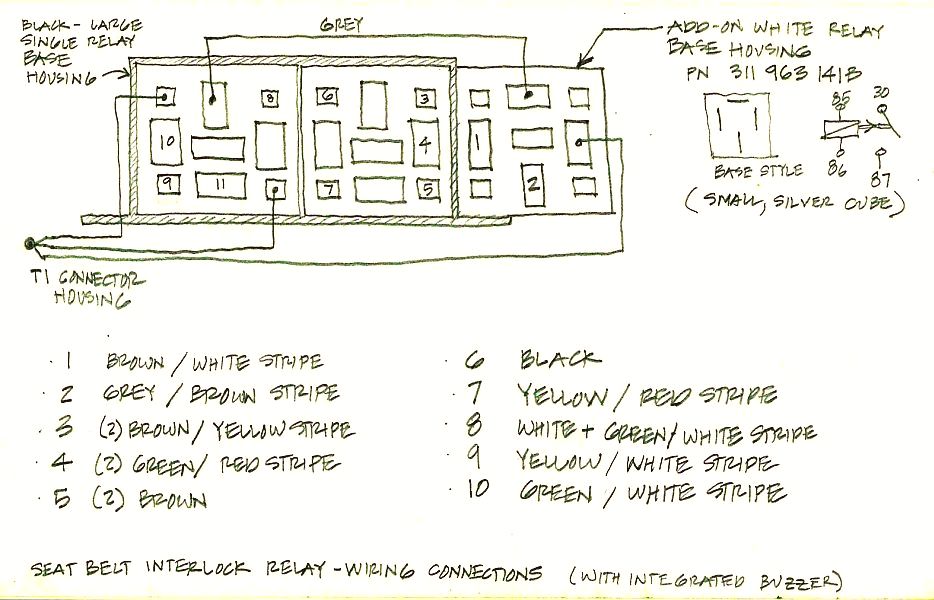 BLACK - LARGE
SINGLE RELAY
BASE
HOUSING
GREY
ADD-ON WHITE RELAY
BASE HOUSING
PN 311 963 141B
85 30
86 87
BASE STYLE
(SMALL, SILVER CUBE)
8 6 3
10 4 1
9 11 7 5 2
T1 CONNECTOR
HOUSING
· 1 BROWN / WHITE STRIPE
· 2 GREY / BROWN STRIPE
· 3 (2) BROWN / YELLOW STRIPE
· 4 (2) GREEN / RED STRIPE
· 5 (2) BROWN
· 6 BLACK
· 7 YELLOW / RED STRIPE
· 8 WHITE + GREEN / WHITE STRIPE
· 9 YELLOW / WHITE STRIPE
· 10 GREEN / WHITE STRIPE
SEAT BELT INTERLOCK RELAY - WIRING CONNECTIONS (WITH INTEGRATED BUZZER)